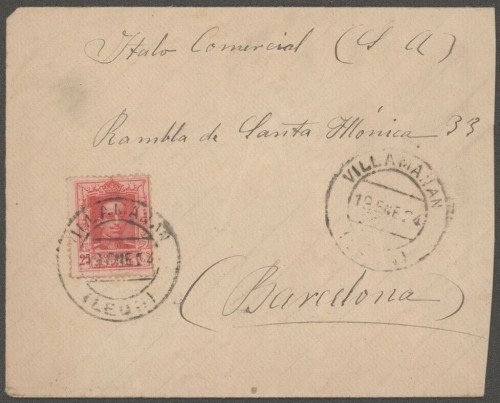 Italo Comercial (S A)
Rambla de Santa Mónica 33
(Barcelona)
VILLAMAÑAN
19 ENE. 24
(LEON)
VILLAMAÑAN
19 ENE. 24
(LEON)